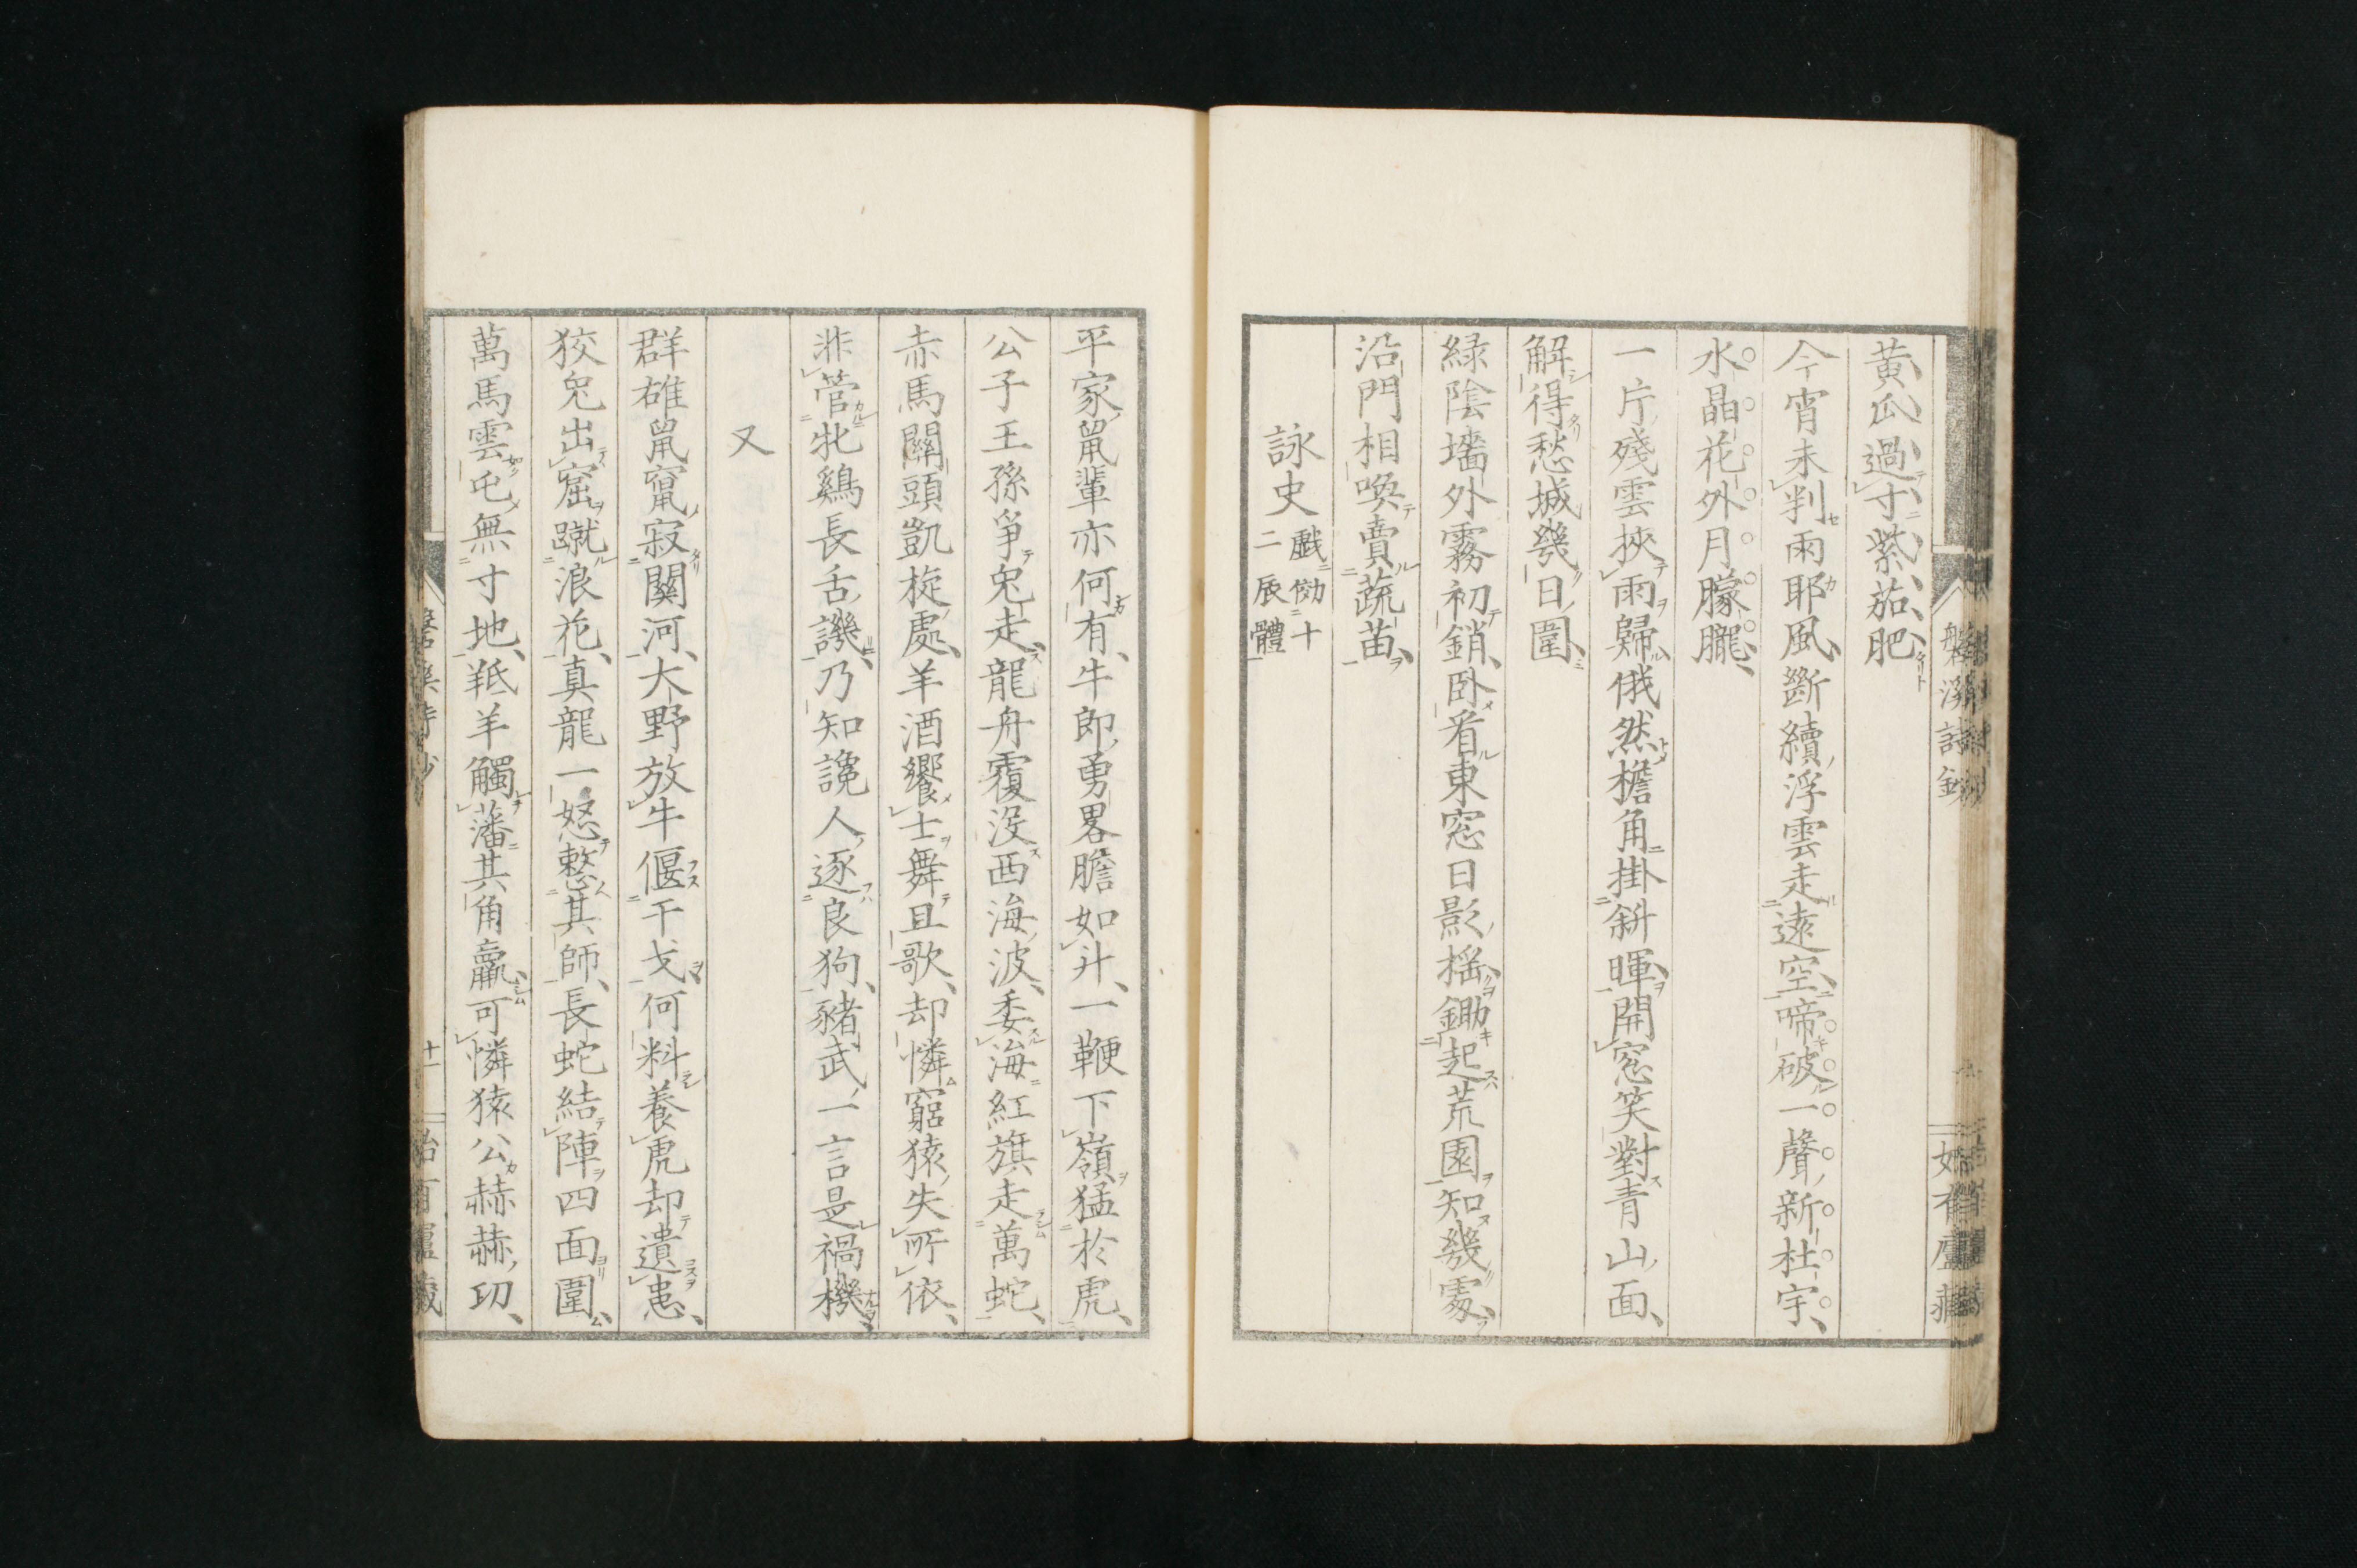 黄瓜過寸紫茄肥
今宵未判雨耶風斷續浮雲走遠空啼破一聲新杜宇
水晶花外月朦朧
一片殘雲挾雨歸俄然檐角掛斜暉開窓笑對青山面
解得愁城幾日圍
緑陰墻外霧初銷卧看東窓日影揺鋤起荒園知幾處
沿門相喚賣蔬苗
詠史 戯傚十二辰體
平家鼠輩亦何有牛郎勇畧膽如斗一鞭下嶺猛於虎
公子王孫爭兔走龍舟覆没西海波委海紅旗走萬蛇
赤馬關頭凱旋處羊酒饗士舞且歌却憐窮猿失所依
非菅牝鷄長舌譏乃知讒人逐良狗豬武一言是禍機
又
群雄鼠竄寂關河大野放牛偃干戈何料養虎却遺患
狡兔出窟蹴浪花真龍一怒整其師長蛇結陣四面圍
萬馬雲屯無寸地羝羊觸藩其角羸可憐猿公赫赫功